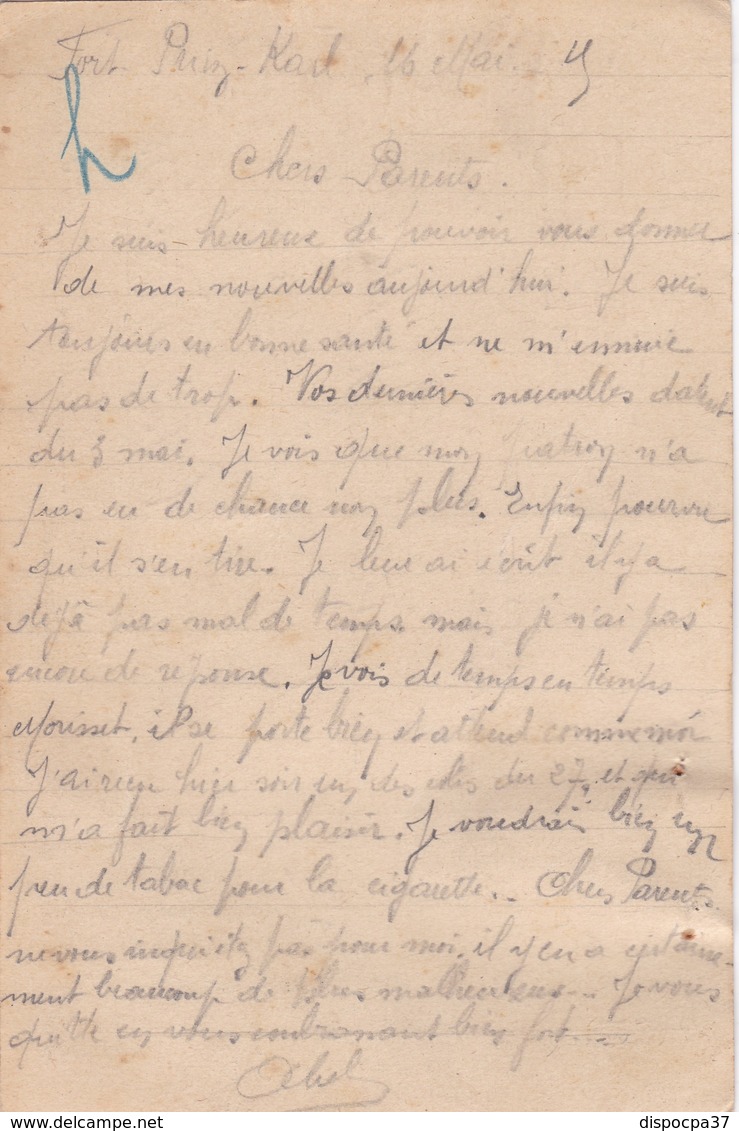 Fort Prinz-Karl. 16 Mai 15
h
Chers Parents.
Je suis heureux de pouvoir vous donner
de mes nouvelles aujourd'hui. Je suis
toujours en bonne santé et ne m'ennuie
pas de trop. Vos dernières nouvelles datent
du 3 mai. Je vois que mon patron n'a
pas eu de chance non plus. Enfin pourvu
qu'il s'en tire. Je leur ai écrit il y a
déjà pas mal de temps mais je n'ai pas
encore de réponse. Je vois de temps en temps
Morisset, il se porte bien et attend comme moi
J'ai reçu hier soir un des colis du 27, et qui
m'a fait bien plaisir. Je voudrais bien un
peu de tabac pour la cigarette.. Chers Parents
ne vous inquiétez pas pour moi, il y en a certaine-
ment beaucoup de plus malheureux.. Je vous
quitte en vous embrassant bien fort...
Abel
dispocpa37